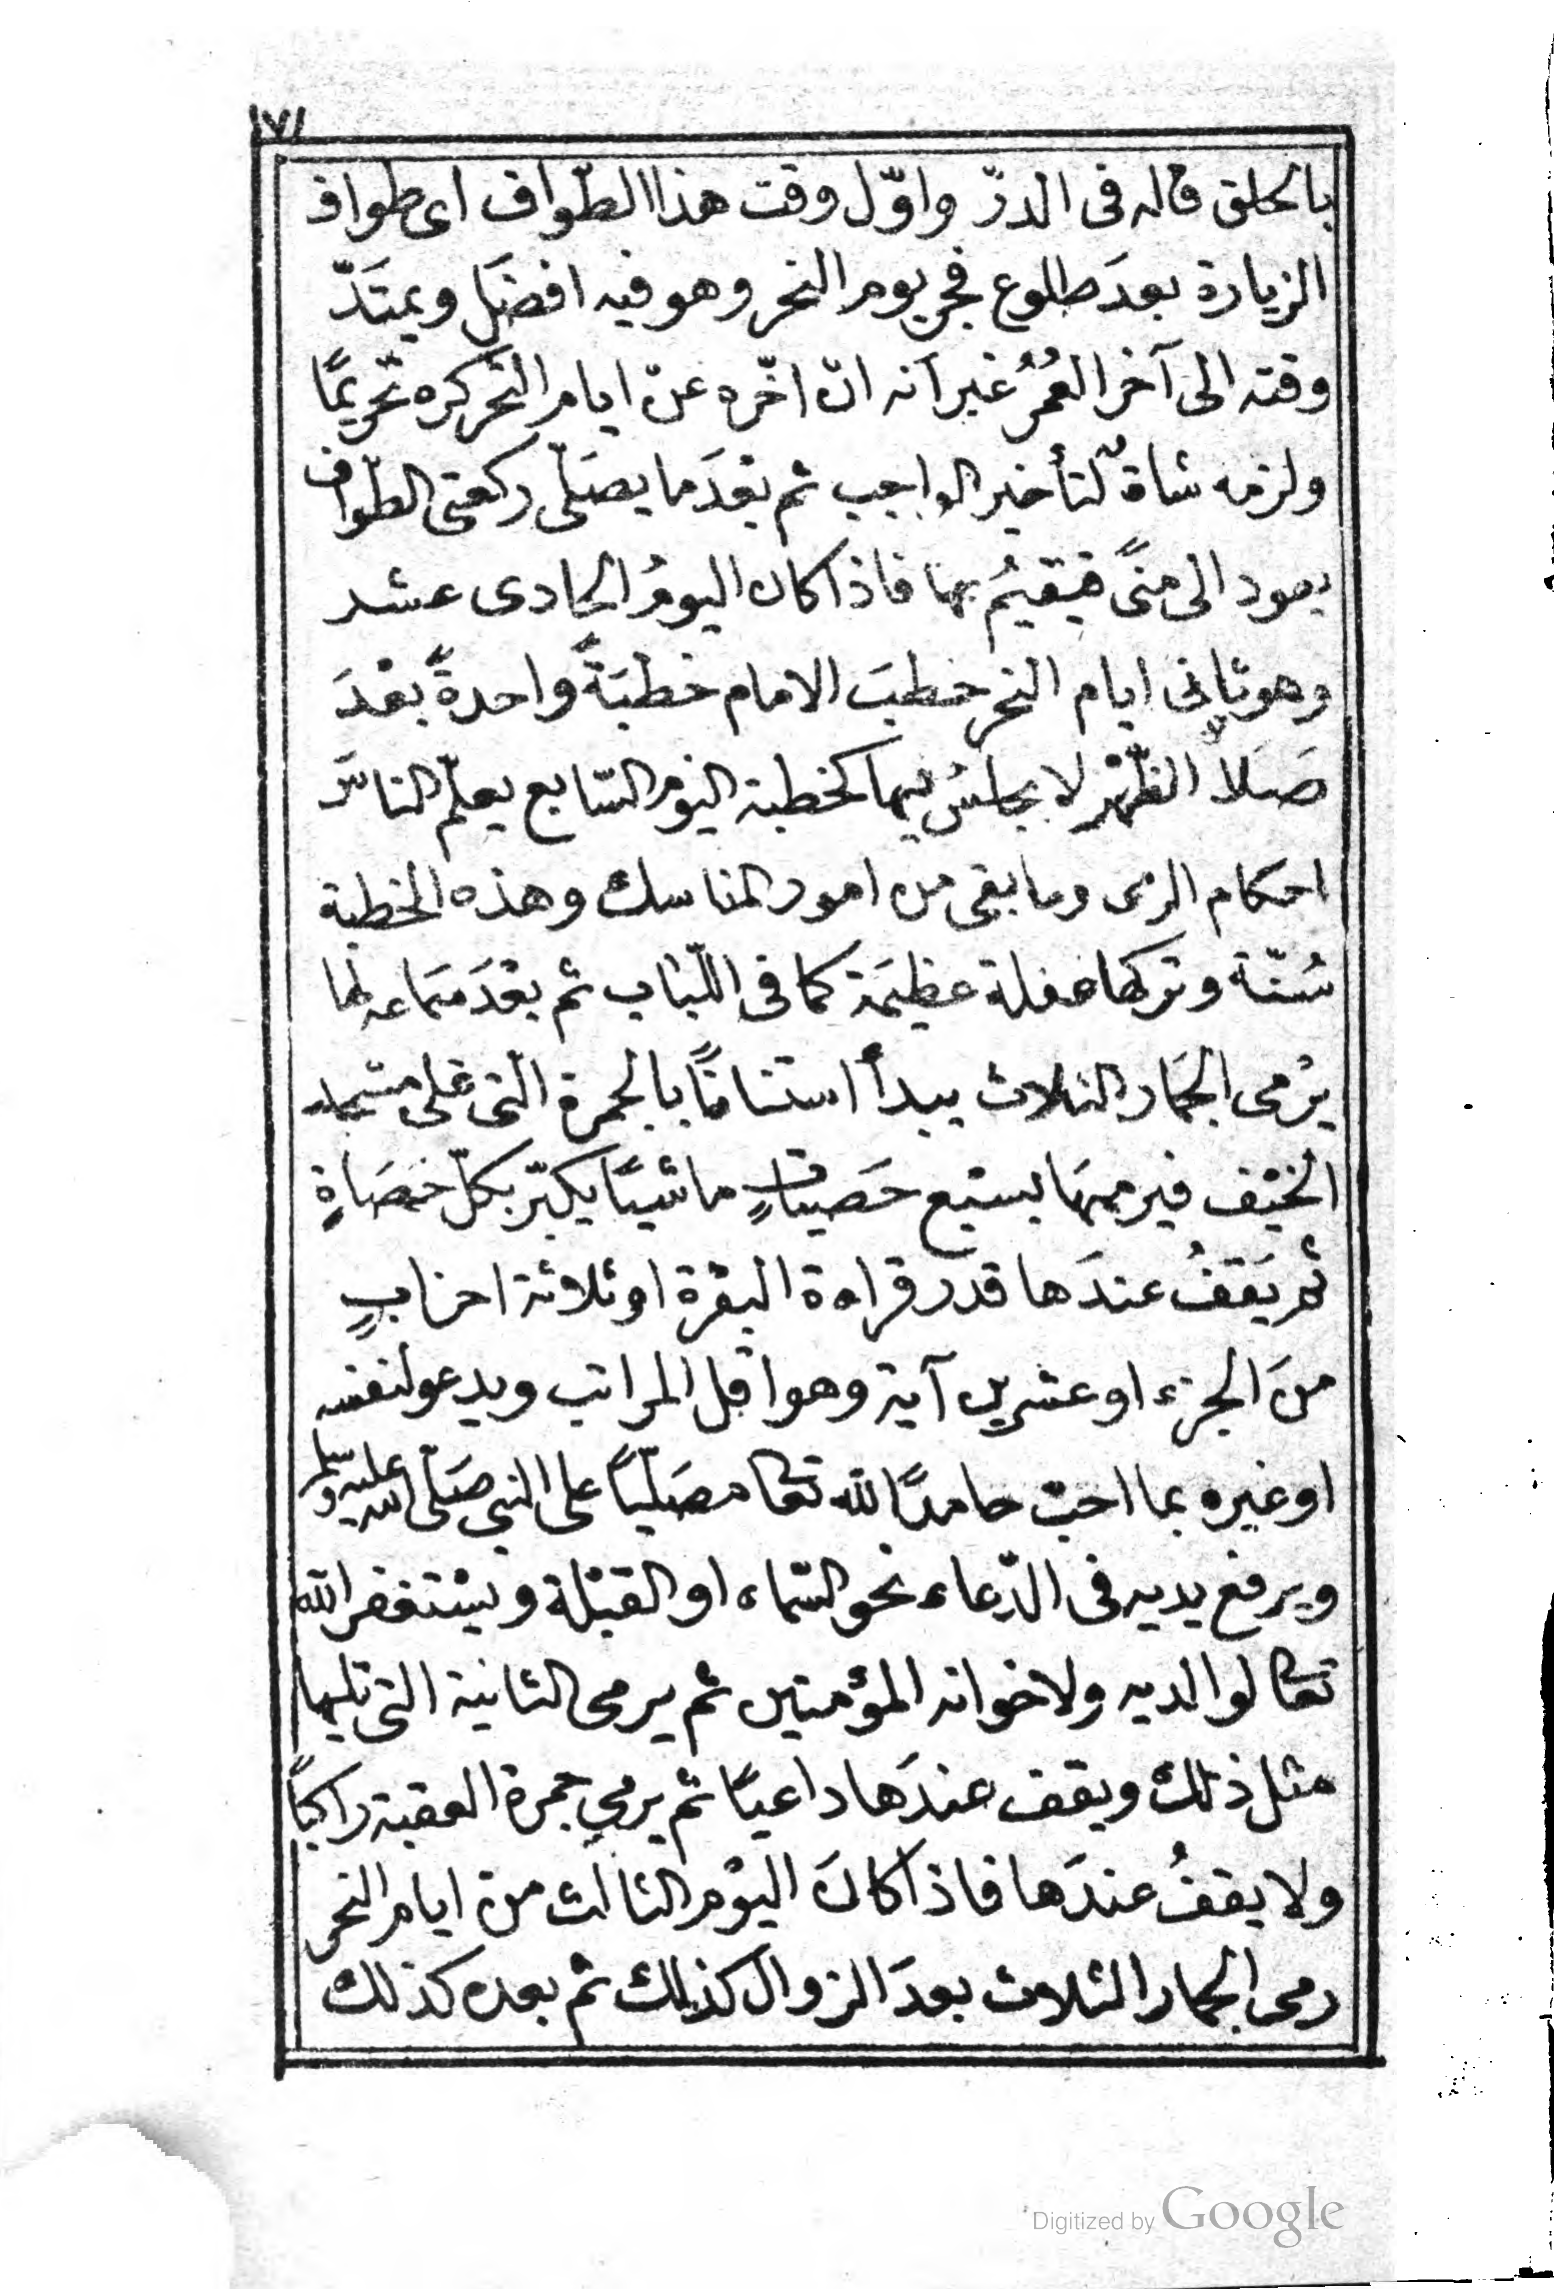 ١٧١
بالحلق قاله فى الدرّ واوّل وقت هذا الطّواف اى طواف
الزيارة بعدَ طلوع فجر يوم النحر وهو فيه افضَل ويمتَدّ
وقته الى آخر العُمُرُ غير آنه انّ اخّره عنّ ايام النّحر كره تحريمًا
ولزمه شاةٌ لتأخير الواجب ثم بعْدَ ما يصَلّى ركعتى الطّواف
يعود الى منًى فيقيمُ بها فاذا كان اليومُ الحادى عشر
وهو ثانى ايام النحر خطبَ الامام خطبَةً واحدةً بعْدَ
صَلاة الظّهْر لا يجلسُ فيها كخطبة اليوم السّابع يعلّم الناسَ
احكام الرمى وما بقى من امور المناسك وهذه الخطبة
سُنّة وتركها غفلة عظيمَة كما فى اللّباب ثم بعْدَ سَماعه لها
يرْمى الجمَار الثلاث يبدأ استنانًا بالجمرة الّتى على مسجد
الخيْف فيرميهَا بسبْع حَصيَاتٍ ماشيًا يكبّر بكلّ حَصَاةٍ
ثم يَقفُ عندَها قدر قراءة البقرة او ثلاثة احزابٍ
منَ الجزء او عشرين آية وهو اقل المراتب ويدعو لنفسه
او غيره بما احبّ حامدًا لله تعا مصَلّيًا على النبى صَلّى الله عليه وسلم
ويرفع يديه فى الدّعاء نحو السّماء او القبْلة ويسْتغفر الله
تعا لوالديه ولاخوانه المؤمنين ثم يرمى الثانية التى تليها
مثل ذلك ويقف عندَها داعيًا ثم يرمي جمرة العقبة راكبًا
ولا يقفُ عندَها فاذا كانَ اليوْم الثالث منْ ايام النحر
رمى الجمار الثلاث بعدَ الزوال كذلك ثم بعده كذلك
Digitized by Google